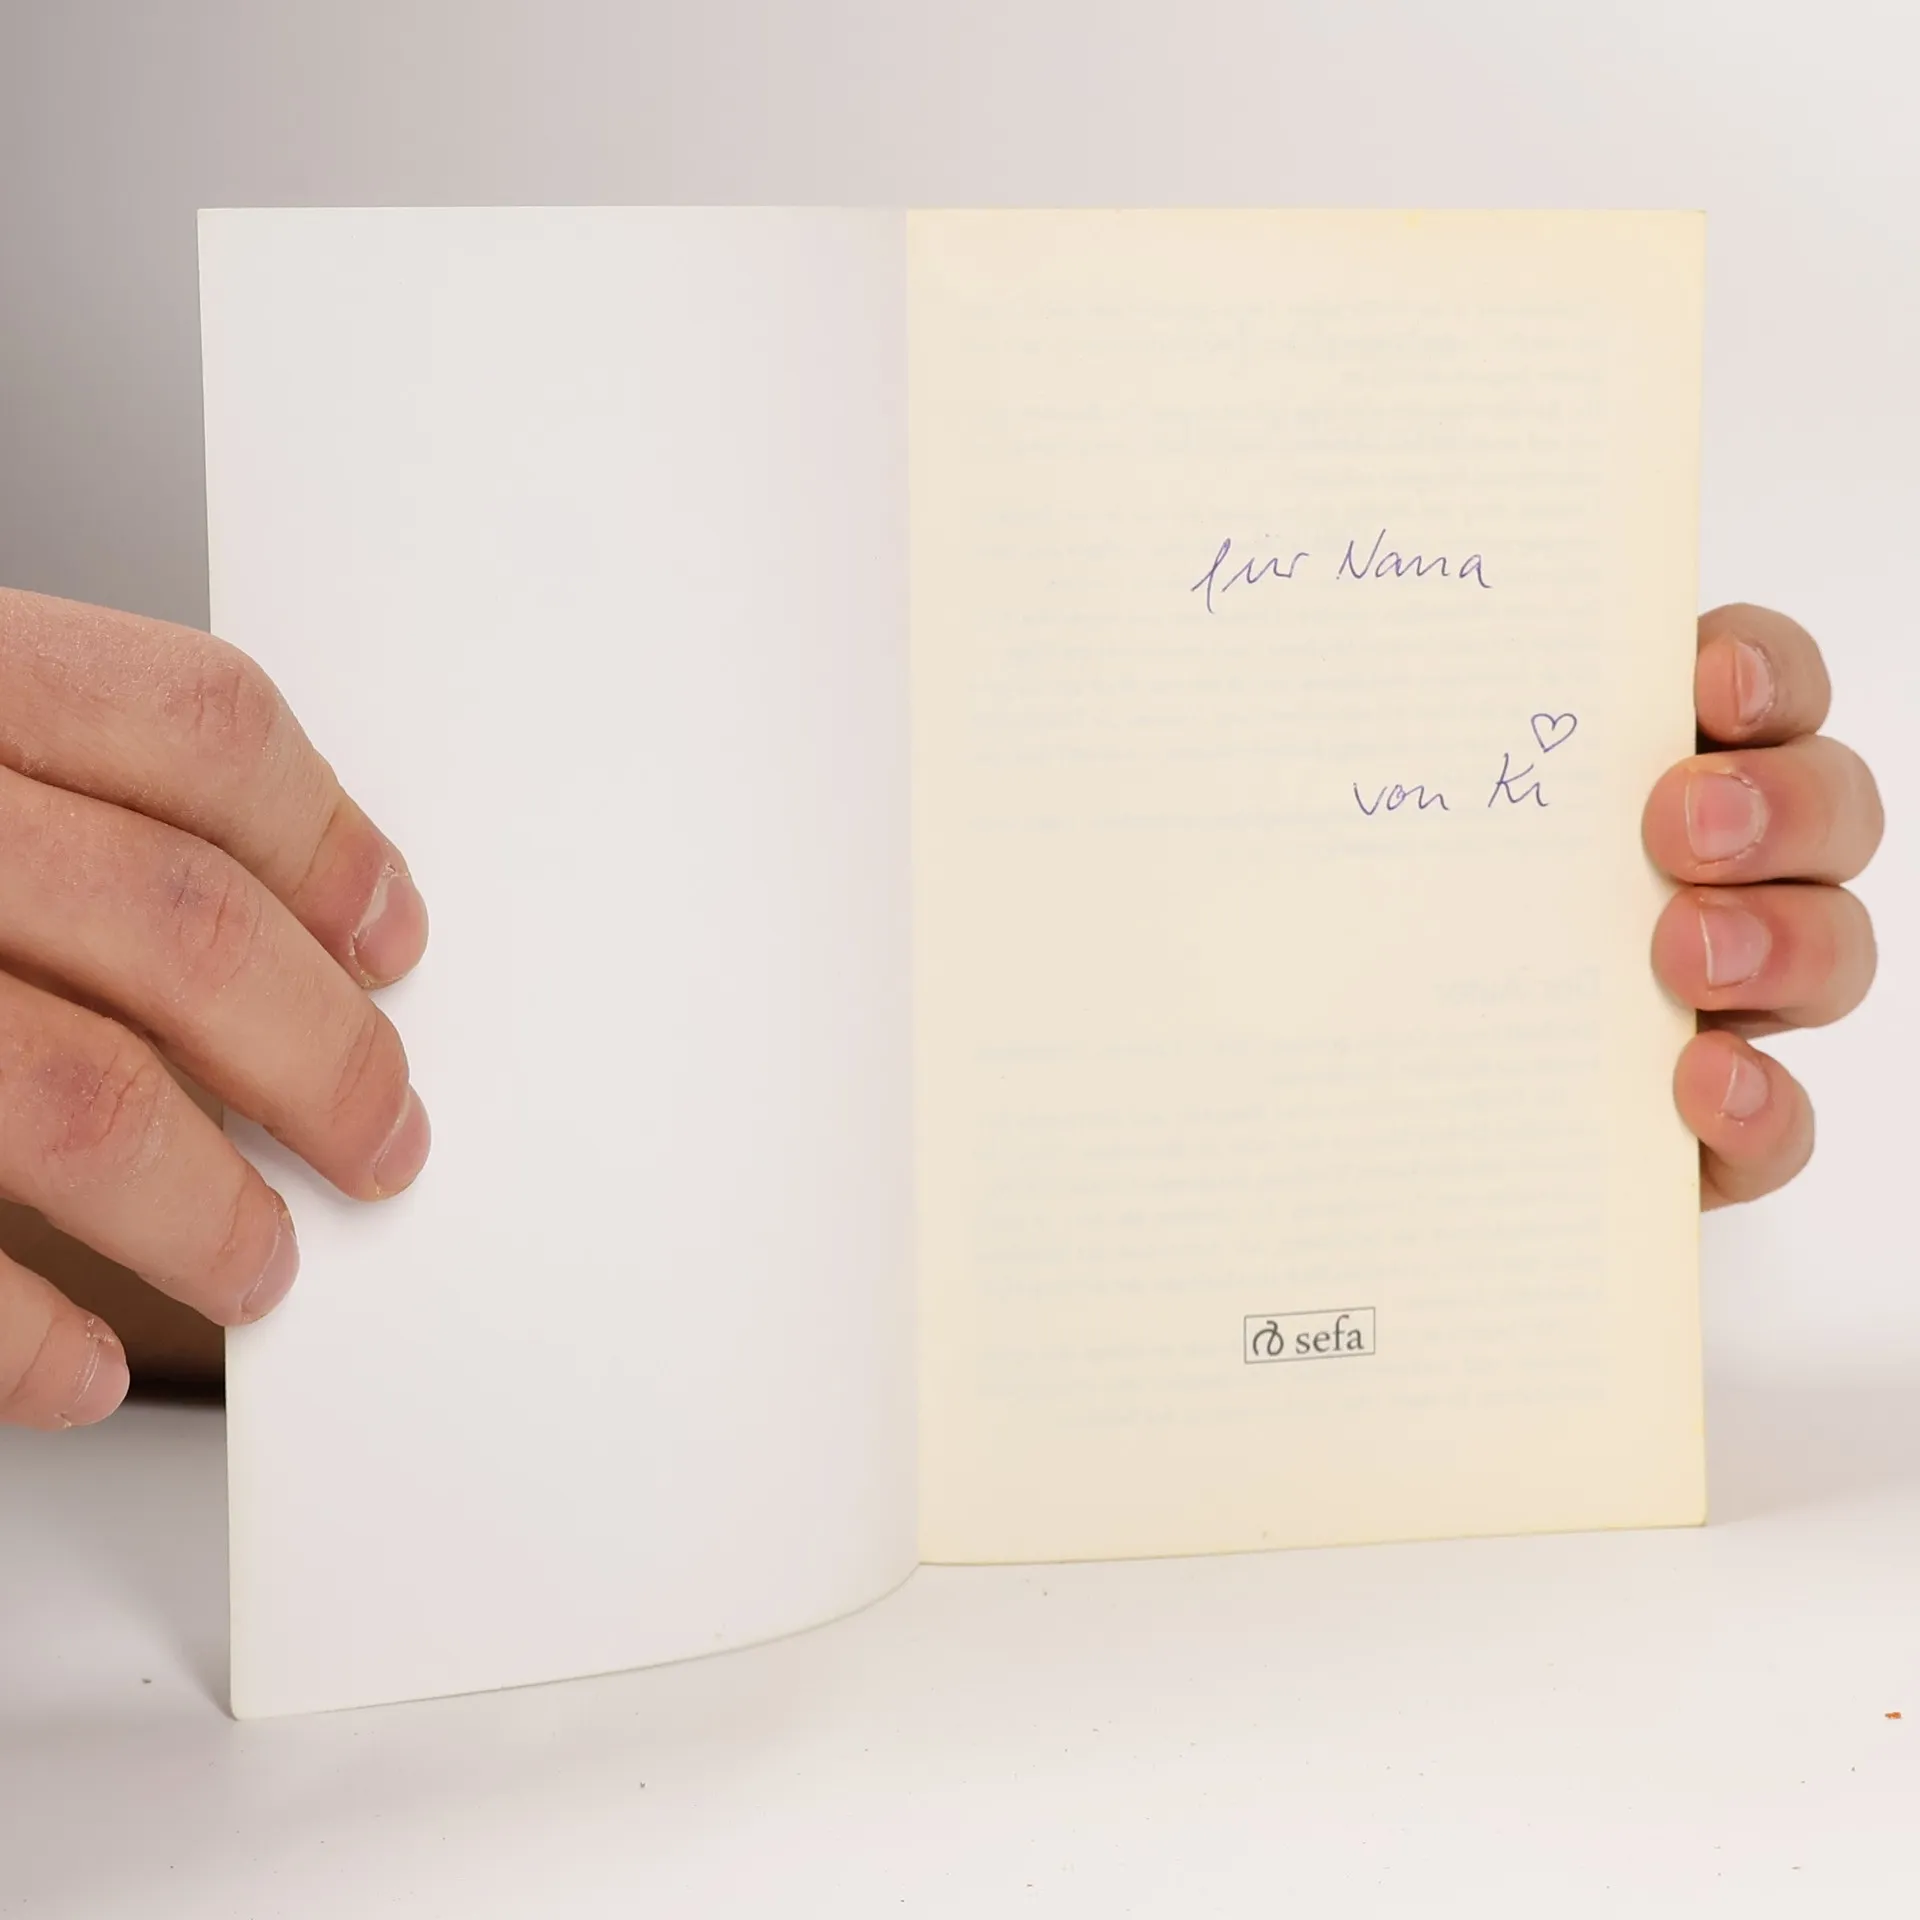 für Nana
von Ki
sefa